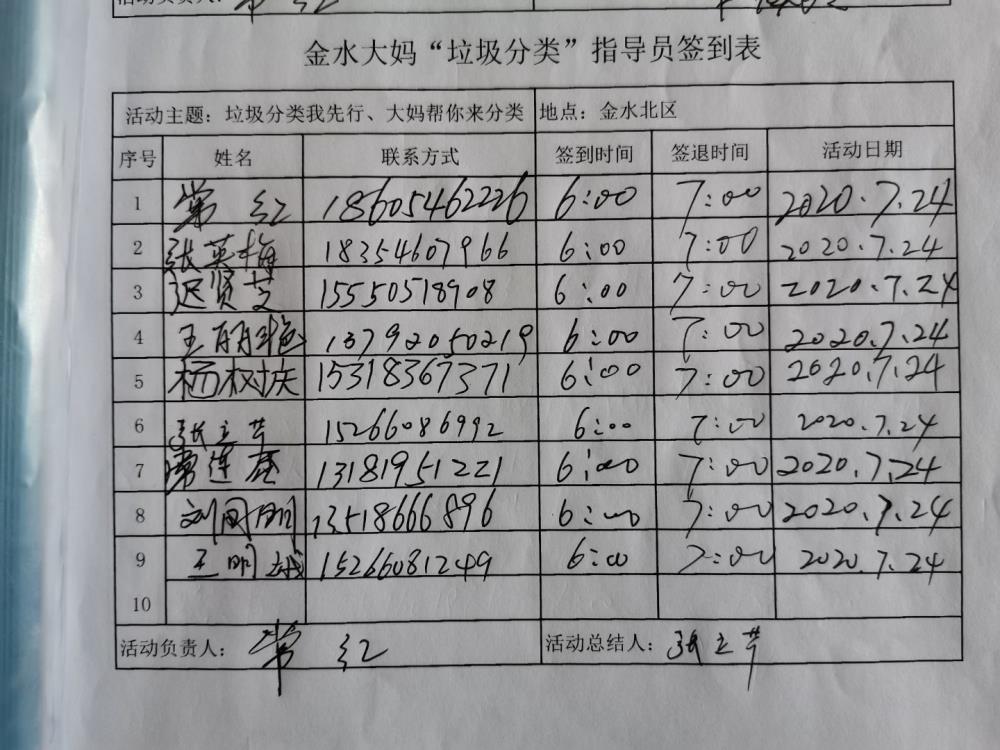 活动负责人：常 红
金水大妈“垃圾分类”指导员签到表
活动主题：垃圾分类我先行、大妈帮你来分类 地点：金水北区
序号 姓名 联系方式 签到时间 签退时间 活动日期
1 常 红 18605462226 6:00 7:00 2020.7.24
2 张英梅 18354607966 6:00 7:00 2020.7.24
3 迟贤芝 15550518908 6:00 7:00 2020.7.24
4 王 13792050219 6:00 7:00 2020.7.24
5 杨树族 15318367371 6:00 7:00 2020.7.24
6 张立芹 15266086992 6:00 7:00 2020.7.24
7 常连 13181951221 6:00 7:00 2020.7.24
8 刘同明 13518666896 6:00 7:00 2020.7.24
9 王明 15266081249 6:00 7:00 2020.7.24
10
活动负责人：常 红 活动总结人：张立芹